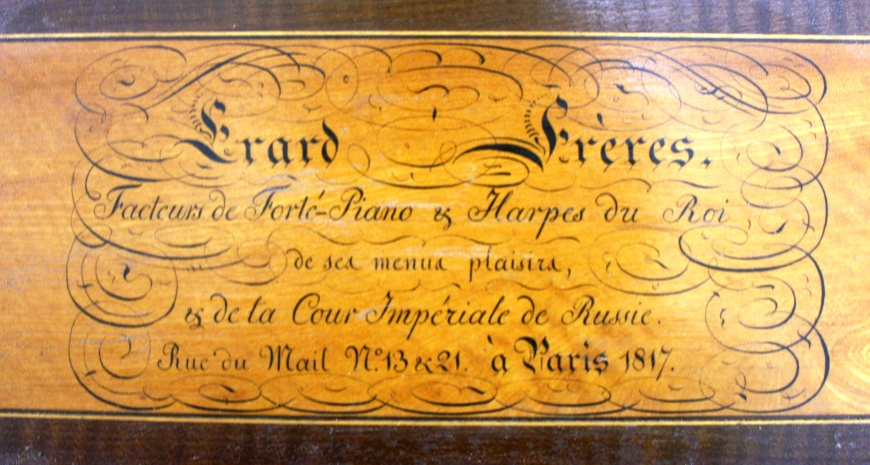 Erard Frères.
Facteurs de Forté-Piano & Harpes du Roi
de ses menus plaisirs,
& de la Cour Impériale de Russie.
Rue du Mail N.º 13 & 21. à Paris 1817.